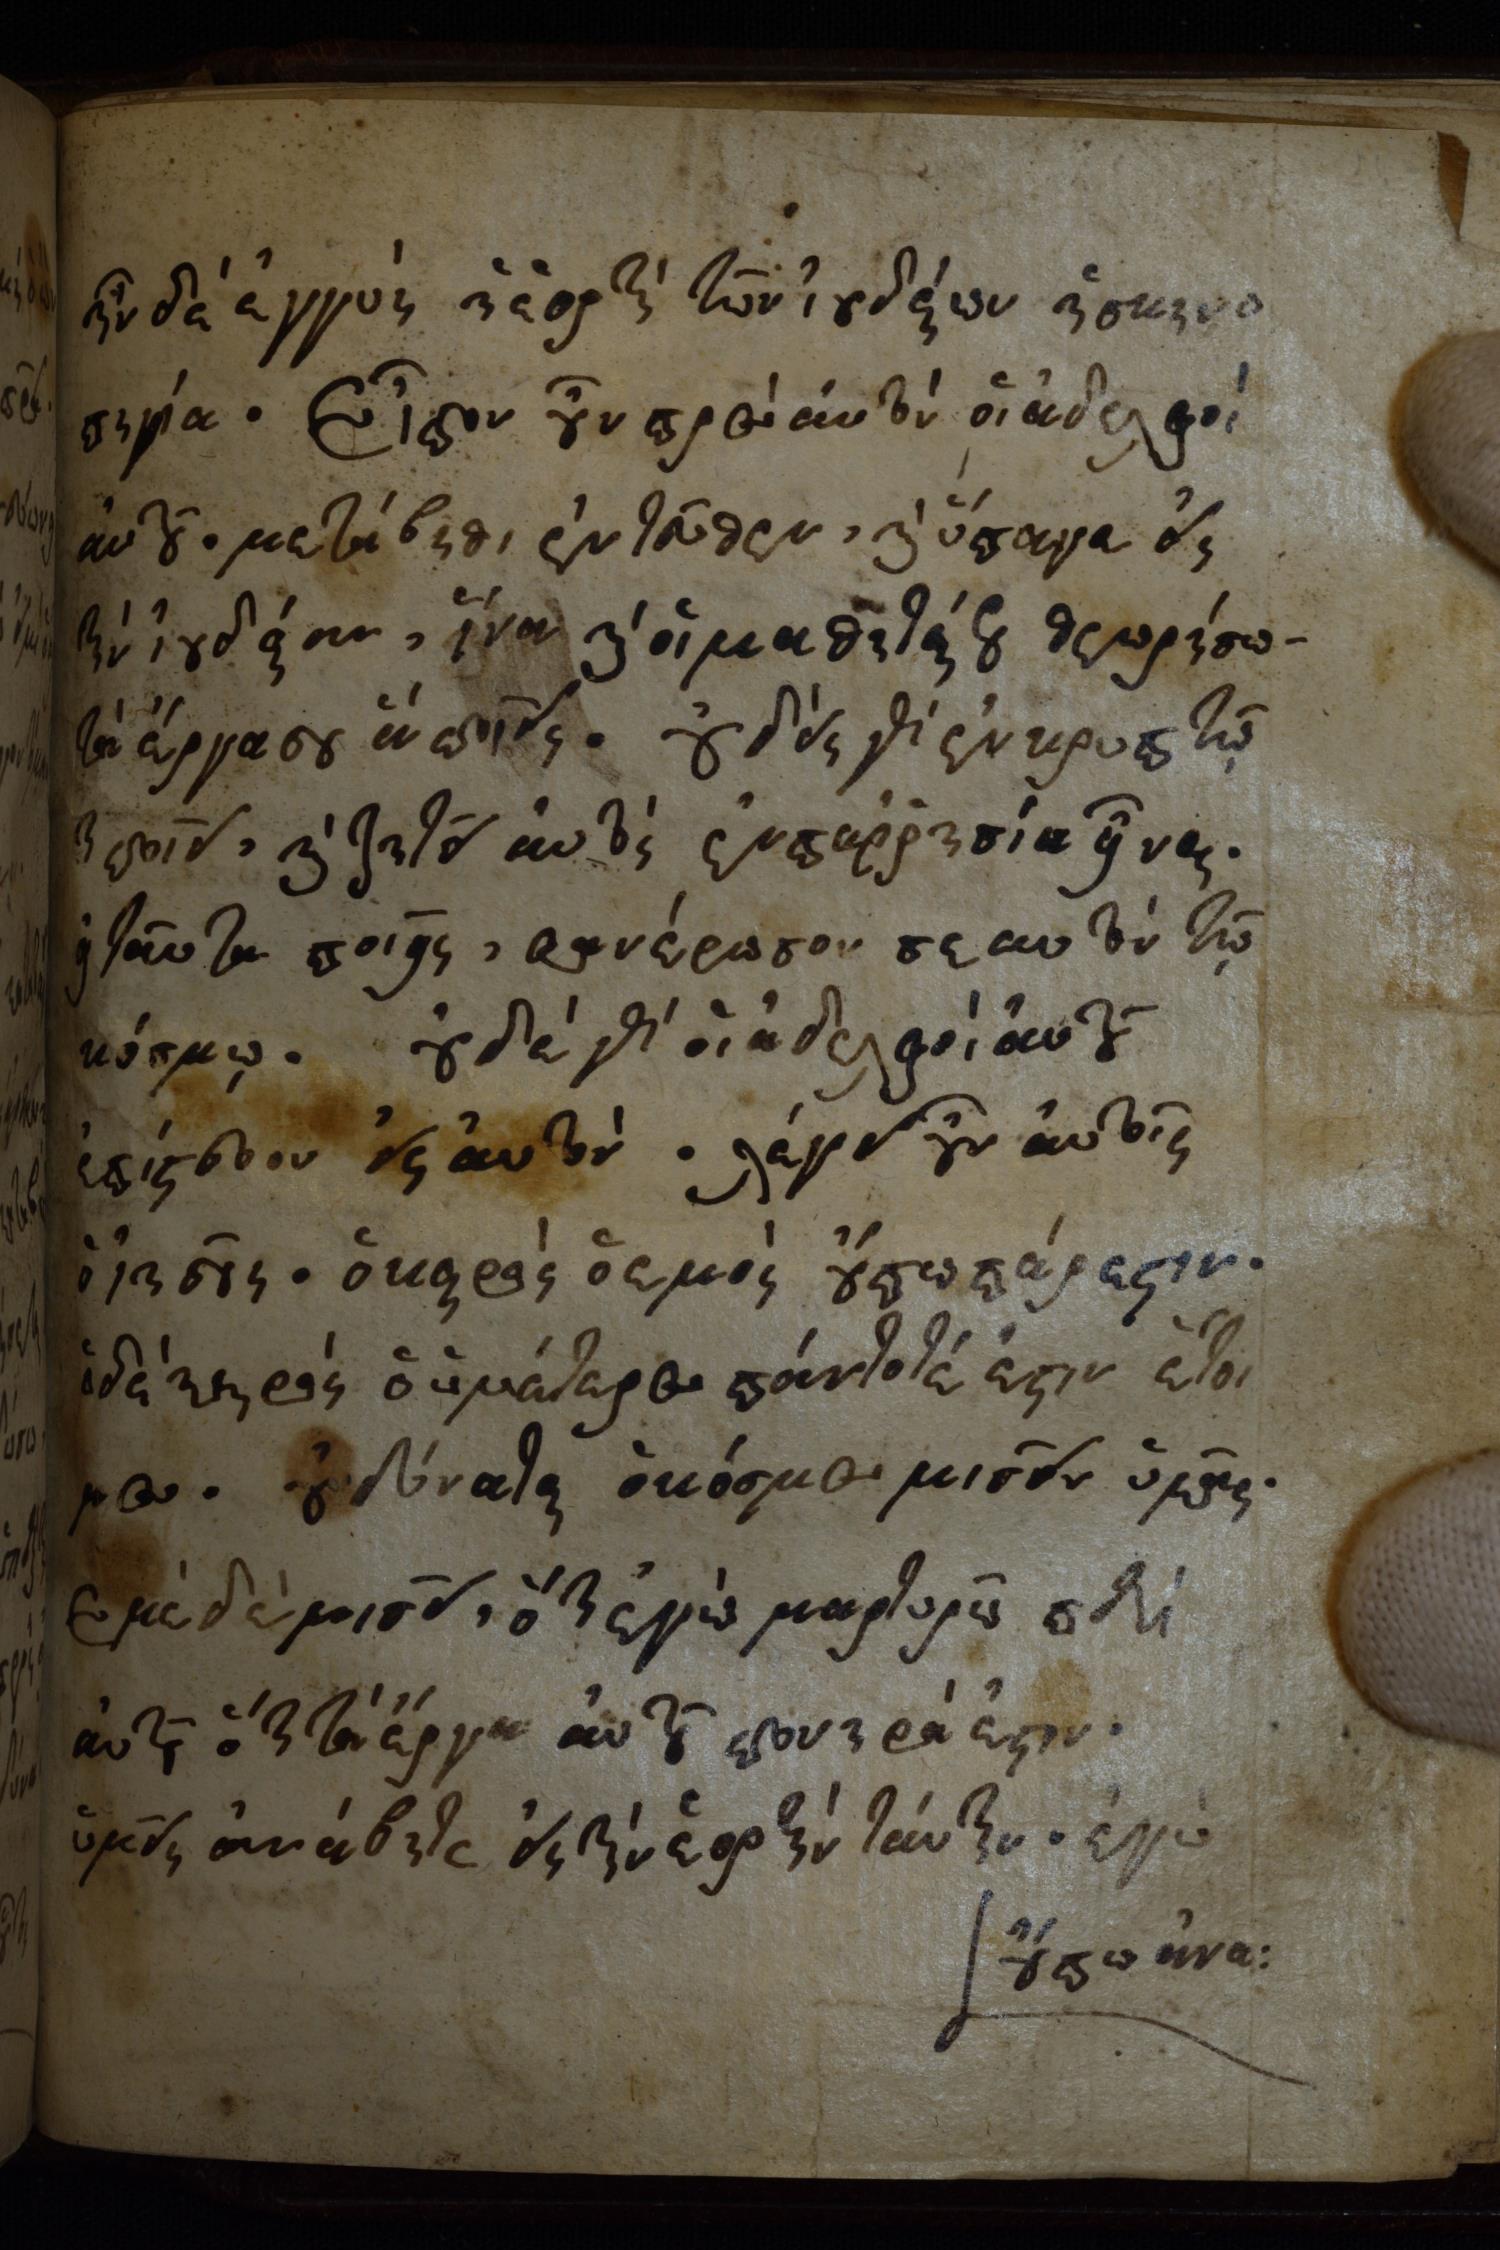 ἦν δὲ ἐγγὺς ἡ ἑορτὴ τῶν ἰουδαίων ἡ σκηνο
πηγία. Εἶπον οὖν πρὸς αὐτὸν οἱ ἀδελφοὶ
αὐτοῦ. μετάβηθι ἐντεῦθεν, καὶ ὕπαγε εἰς
τὴν ἰουδαίαν, ἵνα καὶ οἱ μαθηταί σου θεωρήσω-
τὰ ἔργα σου ἃ ποιεῖς. οὐδεὶς γὰρ ἐν κρυπτῷ
τι ποιεῖ, καὶ ζητεῖ αὐτὸς ἐν παρρησία εἶναι.
εἰ ταῦτα ποιεῖς, φανέρωσον σεαυτὸν τῷ
κόσμῳ. οὐδὲ γὰρ οἱ ἀδελφοὶ αὐτοῦ
ἐπίστευον εἰς αὐτόν. λέγει οὖν αὐτοῖς
ὁ ἰησοῦς. ὁ καιρὸς ὁ ἐμὸς οὔπω πάρεστιν.
ὁ δὲ καιρὸς ὁ ὑμέτερος πάντοτέ ἐστιν ἕτοι
μος. οὐ δύναται ὁ κόσμος μισεῖν ὑμᾶς.
ἐμὲ δὲ μισεῖ, ὅτι ἐγὼ μαρτυρῶ περὶ
αὐτοῦ ὅτι τὰ ἔργα αὐτοῦ πονηρά ἐστιν.
ὑμεῖς ἀνάβητε εἰς τὴν ἑορτὴν ταύτην. ἐγὼ
οὔπω ἀνα: